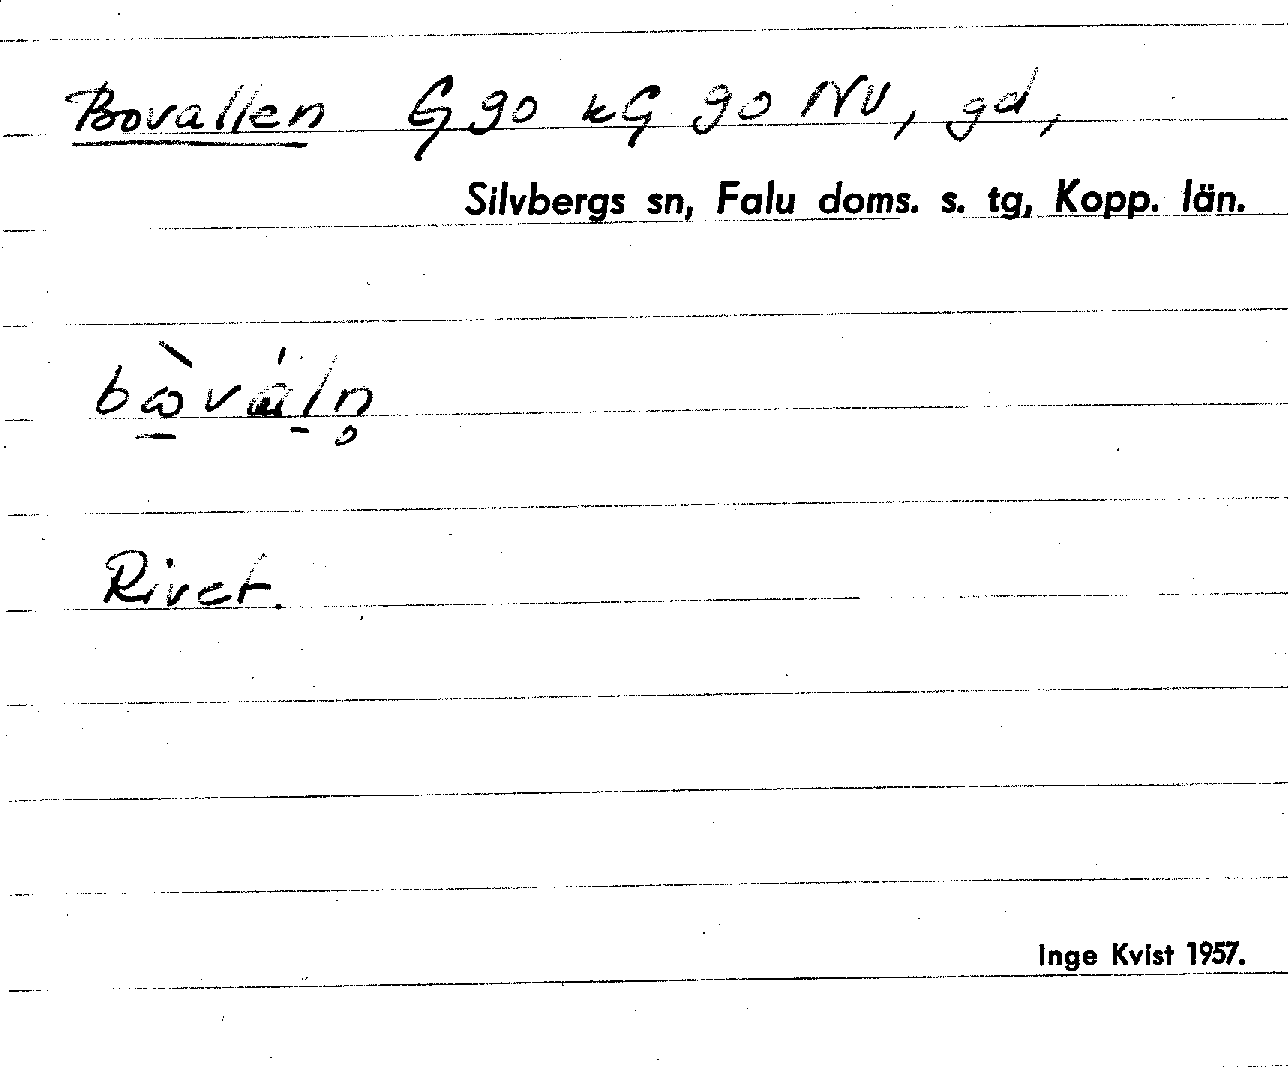 Bovallen G 90 kG 90 NV, gd,
Silvbergs sn, Falu doms. s. tg, Kopp. län.
Rivet.
Inge Kvist 1957.